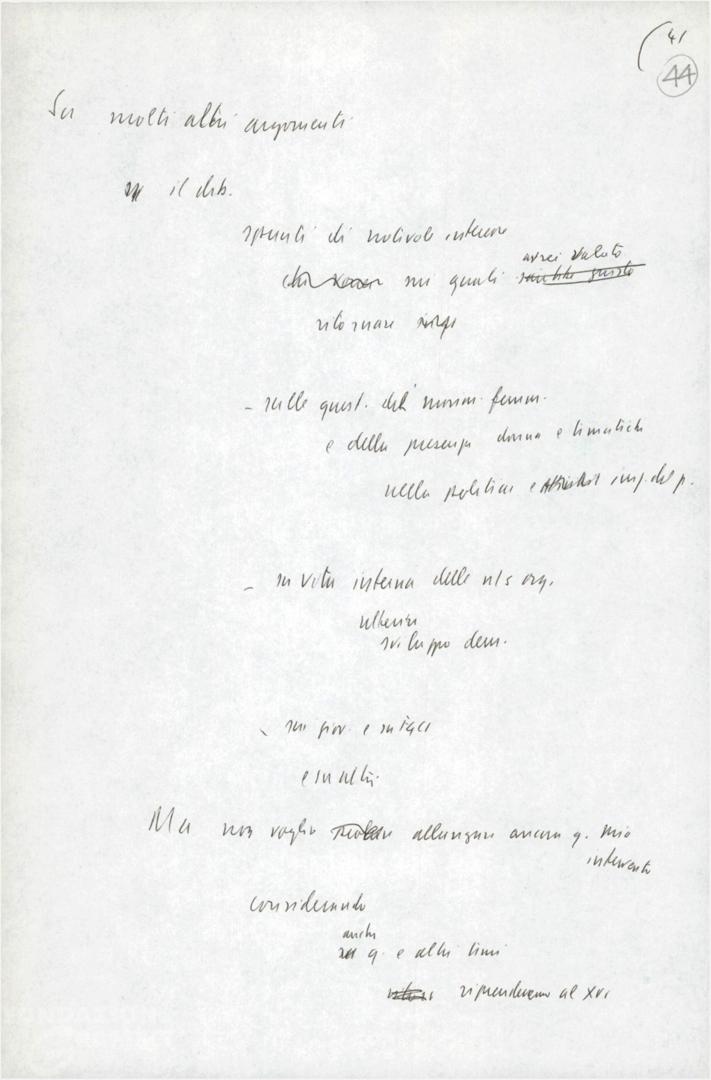 41
44
Su molti altri argomenti
il dib.
spunti di notevole interesse
sui quali avrei voluto
ritornare
- sulle quest. del movim. femm.
e della presenza donna e tematiche
nella politica e imp. del p.
- su vita interna delle ns org.
ulteriore
sviluppo dem.
- su giov. e su FGCI
e su altri.
Ma non voglio allungare ancora q. mio
intervento
considerando
anche
q. e altri temi
riprenderemo al XVI